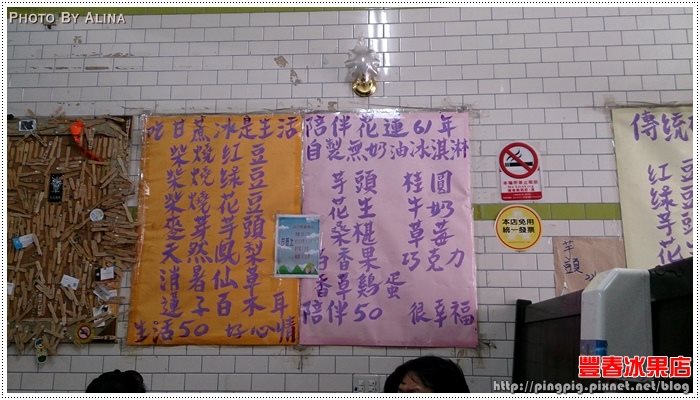 PHOTO BY ALINA
吃甘蔗冰是生活
柴燒紅豆
柴燒綠豆
柴燒花豆
巫芽芋頭
天然鳳梨
消暑仙草
蓮子白木耳
生活50 好心情
陪伴花蓮61年
自製無奶油冰淇淋
芋頭 桂圓
花生 牛奶
桑椹 草莓
百香果 巧克力
香草鷄蛋
陪伴50 很幸福
本店免用
統一發票
芋頭
傳統
紅
綠
芋
花
豐春冰果店
http://pingpig.pixnet.net/blog